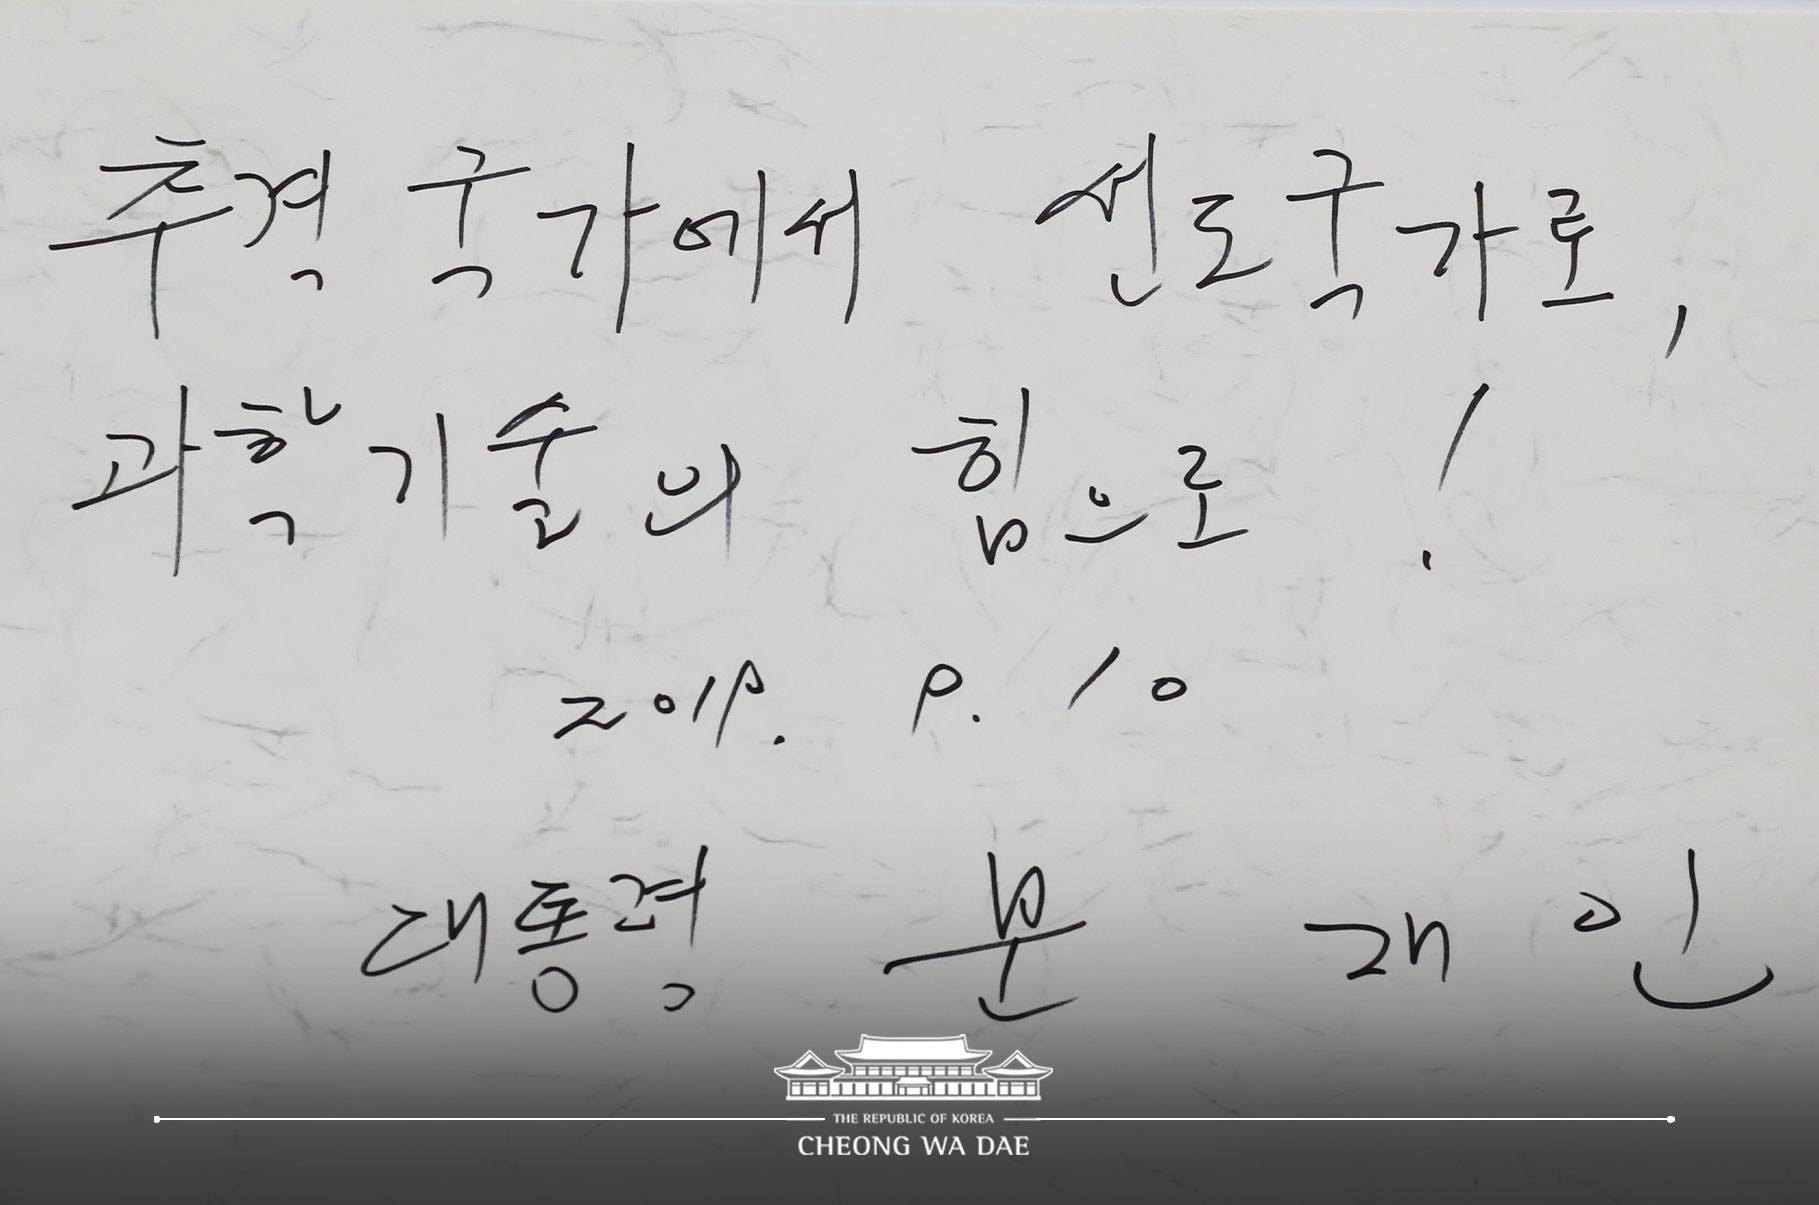 추격 국가에서 선도국가로,
과학기술의 힘으로!
2019. 9. 10
대통령 문 재 인
THE REPUBLIC OF KOREA
CHEONG WA DAE